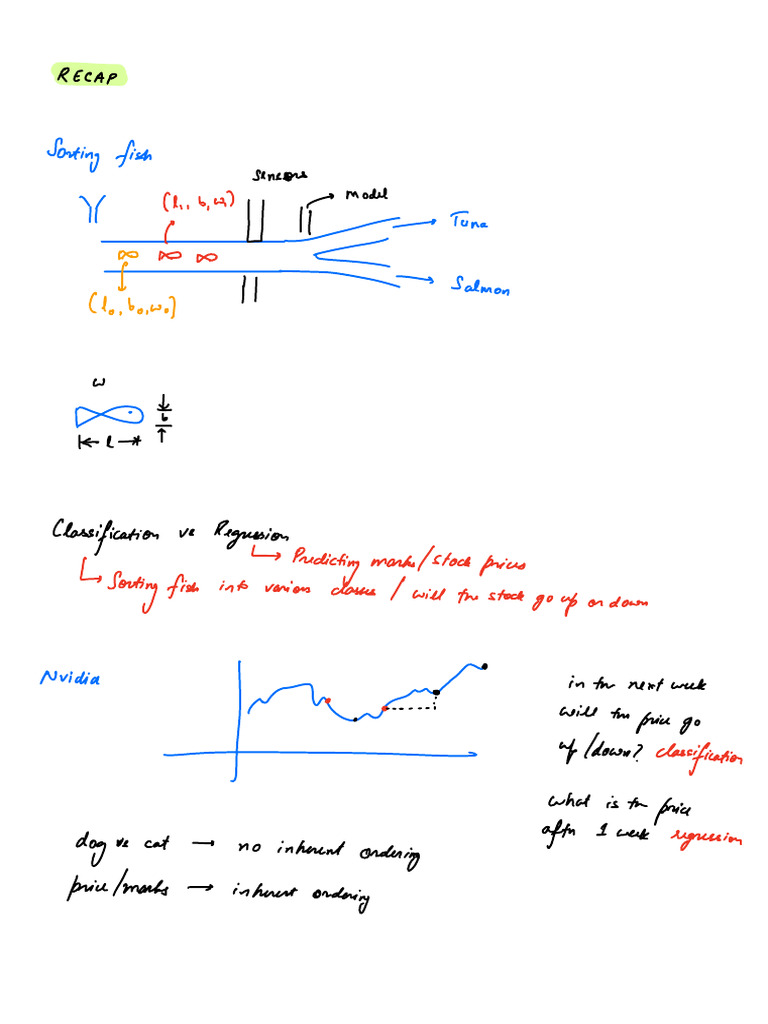 RECAP
Sorting fish
Sensors
Model
(l₁, b₁, w₁)
Tuna
Salmon
(l₀, b₀, w₀)
w
b
l
Classification vs Regression
Predicting marks/stock prices
Sorting fish into various classes / will the stock go up or down
Nvidia
in the next week
will the price go
up/down? classification
what is the price
after 1 week regression
dog vs cat → no inherent ordering
price/marks → inherent ordering